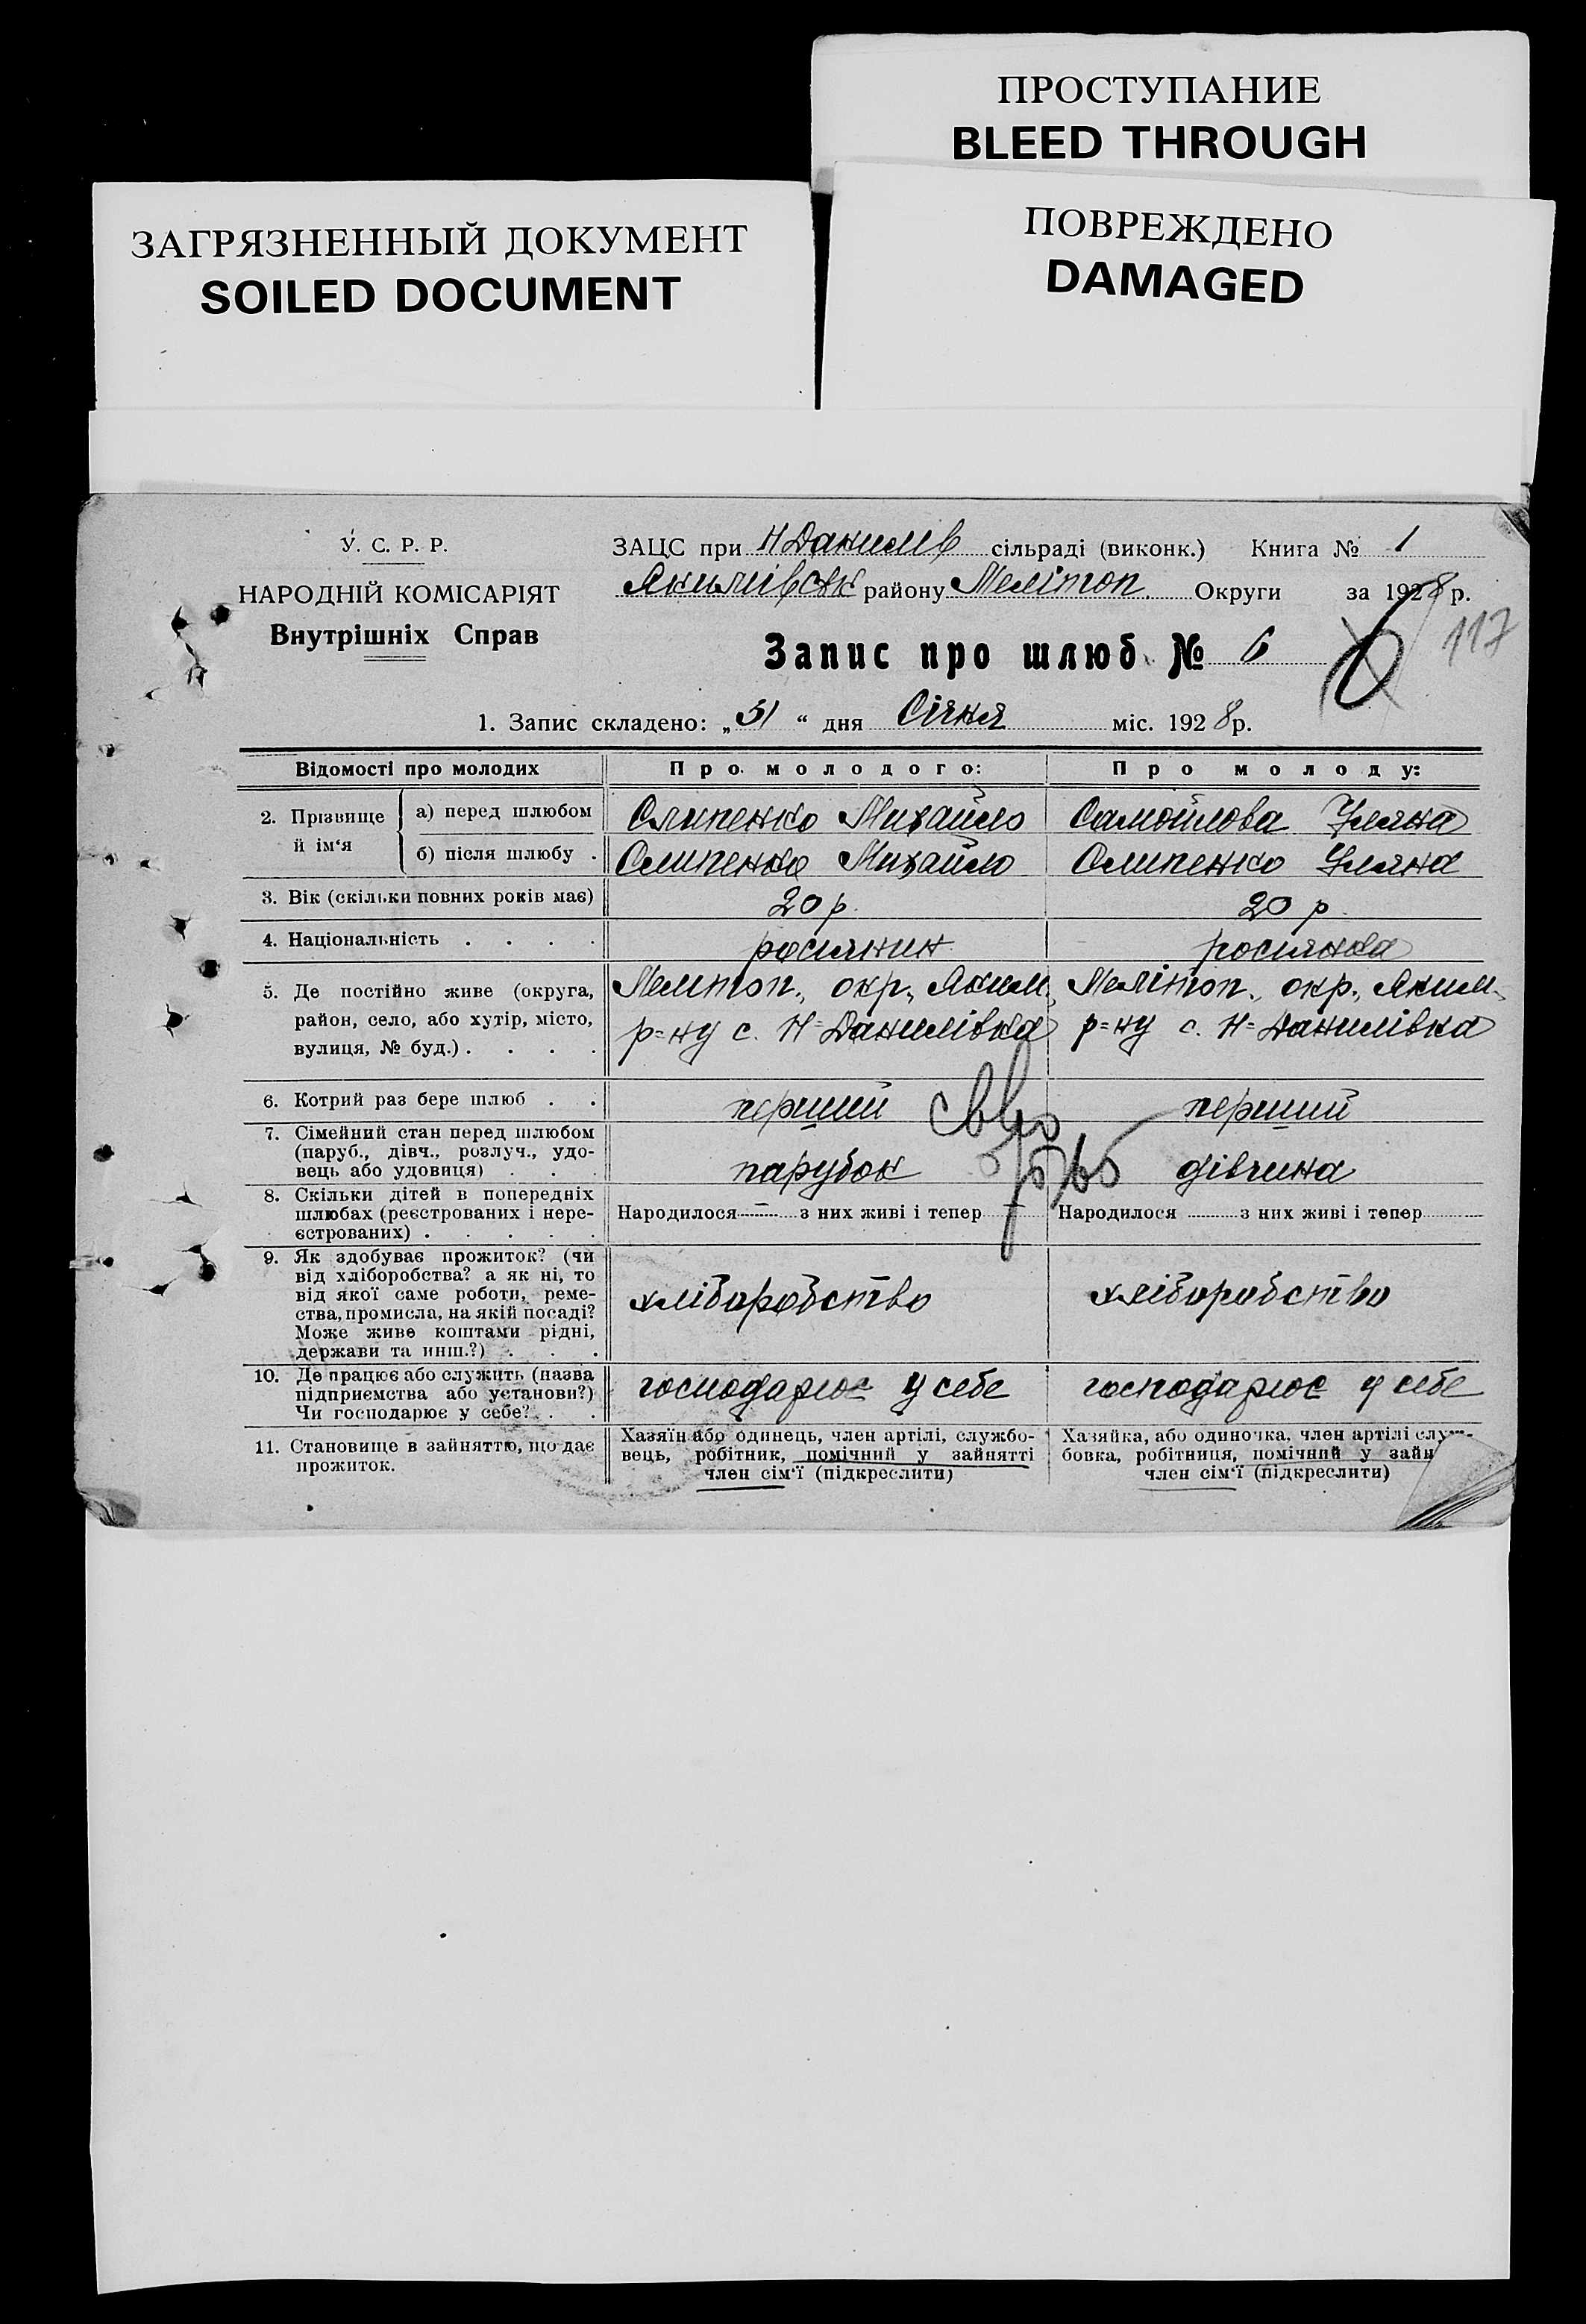 ПРОСТУПАНИЕ
BLEED THROUGH
ЗАГРЯЗНЕННЫЙ ДОКУМЕНТ
SOILED DOCUMENT
ПОВРЕЖДЕНО
DAMAGED
У. С. Р. Р.
НАРОДНІЙ КОМІСАРІЯТ
Внутрішніх Справ
ЗАЦС при Н Данилів сільраді (виконк.) Книга № 1
Якимівськ району Мелітоп Округи за 1928 р.
Запис про шлюб № 6 6 117
1. Запис складено: „31“ дня Січня міс. 1928 р.
Відомості про молодих Про молодого: Про молоду:
2. Прізвище й ім‘я
а) перед шлюбом Олипенко Михайло Самойлова Уляна
б) після шлюбу . Олипенко Михайло Олипенко Уляна
3. Вік (скільки повних років має) 20 р. 20 р.
4. Національність . . . . росиянин росиянка
5. Де постійно живе (округа, Меліtоп., окр., Яким. Мелітоп., окр., Яким.
район, село, або хутір, місто, р=ну с. Н=Данилівка р=ну с. Н=Данилівка
вулиця, № буд.) . . . .
6. Котрий раз бере шлюб . . перший перший
7. Сімейний стан перед шлюбом
(паруб., дівч., розлуч., удо-
вець або удовиця) . . . парубок дівчина
8. Скільки дітей в попередніх
шлюбах (реєстрованих і нере- Народилося – з них живі і тепер – Народилося з них живі і тепер
єстрованих) . . . . .
9. Як здобуває прожиток? (чи
від хліборобства? а як ні, то
від якої саме роботи, реме- хліборобство хліборобство
ства, промисла, на якій посаді?
Може живе коштами рідні,
держави та инш.?) . . .
10. Де працює або служить (назва
підприємства або установи?) господарює у себе господарює у себе
Чи господарює у себе? . .
11. Становище в зайняттю, що дає
прожиток.
Хазяїн або одинець, член артілі, службо-
вець, робітник, помічний у зайнятті
член сім‘ї (підкреслити)
Хазяйка, або одиночка, член артілі служ-
бовка, робітниця, помічний у зайн
член сім‘ї (підкреслити)